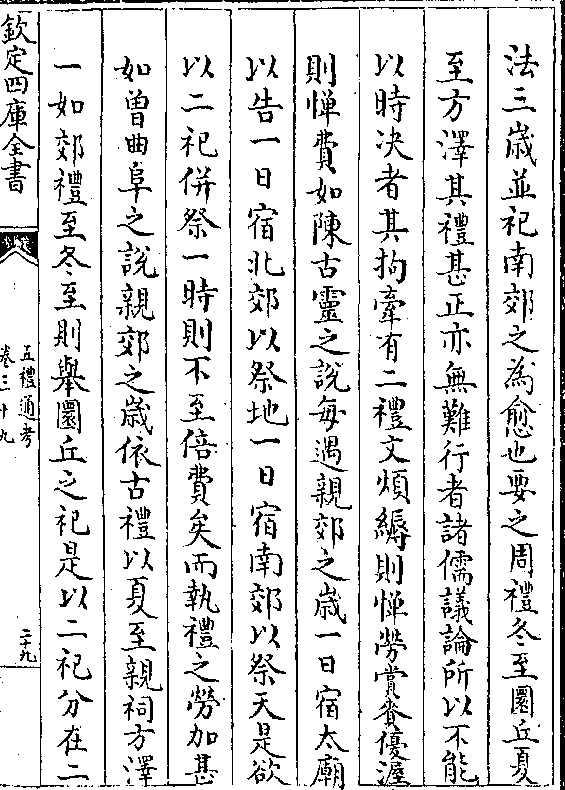 法三歳並祀南郊之為愈也要之周禮冬至圜丘夏
至方澤其禮甚正亦無難行者諸儒議論所以不能
以時决者其拘牽有二禮文煩縟則憚勞賞賚優渥
則憚費如陳古靈之說每遇親郊之歳一日宿太廟
以告一日宿北郊以祭地一日宿南郊以祭天是欲
以二祀併祭一時則不至倍費矣而執禮之勞加甚
如曽曲阜之說親郊之歳依古禮以夏至親祠方澤
一如郊禮至冬至則舉圜丘之祀是以二祀分在二
欽定四庫全書
五禮通考
卷三十九
二十九